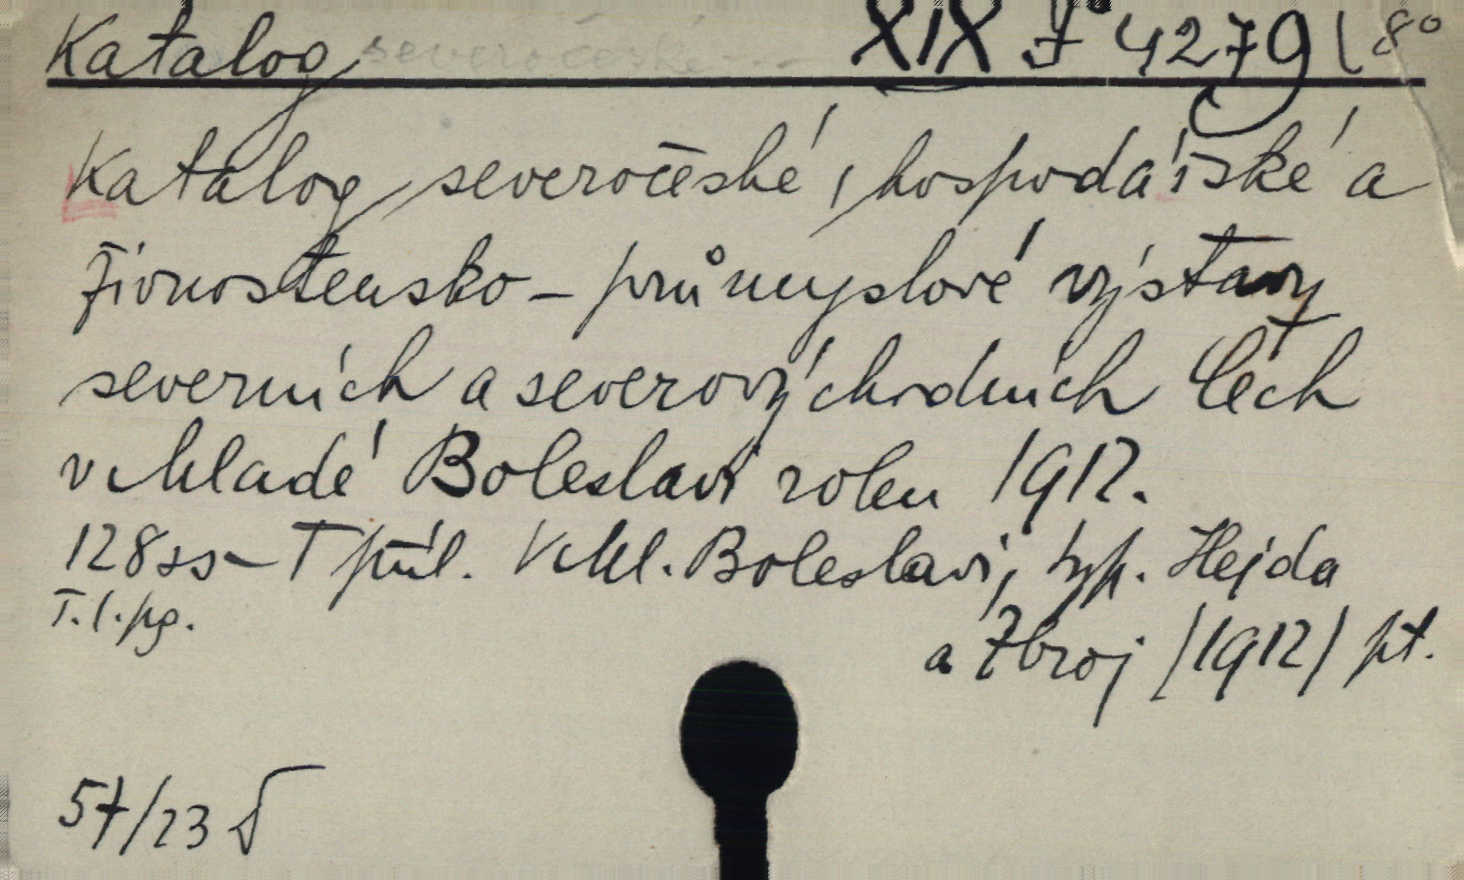 Katalog severočeské... XIX J 4279 (8°
Katalog severočeské, hospodářské a
živnostensko-průmyslové výstavy
severních a severovýchodních Čech
v Mladé Boleslavi roku 1912.
128 ss - T příl. V Ml. Boleslavi, typ. Hejda
T. l. pg.
a Zbroj /1912/ pt.
57/23